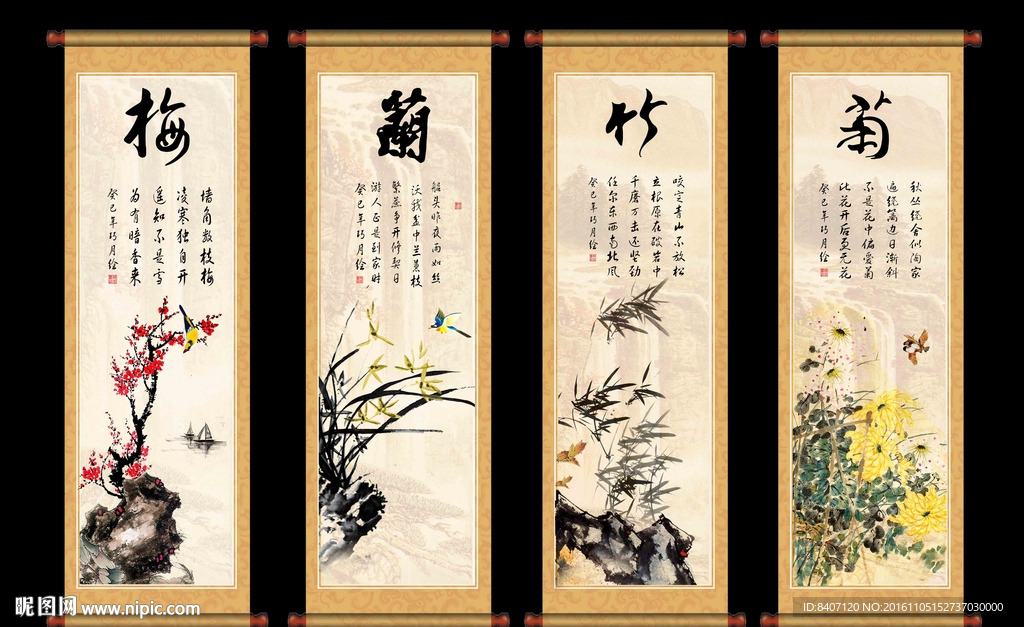 梅
墙角数枝梅
凌寒独自开
遥知不是雪
为有暗香来
癸巳年巧月绘
蘭
船头昨夜雨如丝
沃我盆中兰蕙枝
繁蕊争开修契日
游人正是到家时
癸巳年巧月绘
竹
咬定青山不放松
立根原在破岩中
千磨万击还坚劲
任尔东西南北风
癸巳年巧月绘
菊
秋丛绕舍似陶家
遍绕篱边日渐斜
不是花中偏爱菊
此花开后更无花
癸巳年巧月绘
昵图网 www.nipic.com
ID:8407120 NO:20161105152737030000